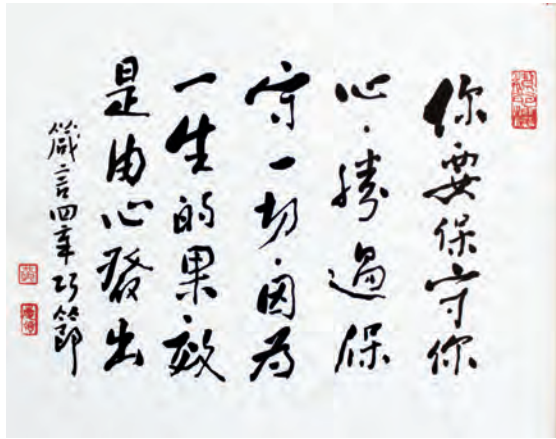 你要保守你
心·勝過保
守一切·因為
一生的果效
是由心發出
箴言四章節